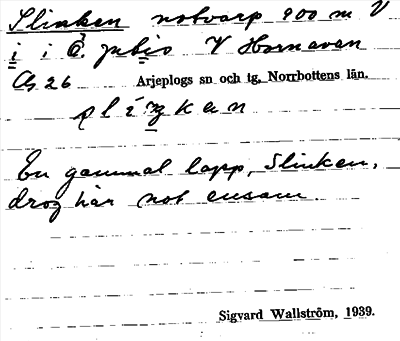 Slinken notvarp 900 m V
i i Ö. jutis V Hornavan
Ag 26 Arjeplogs sn och tg, Norrbottens län.
slíŋken
En gammal lapp, Slinken,
drog här not ensam.
Sigvard Wallström, 1939.